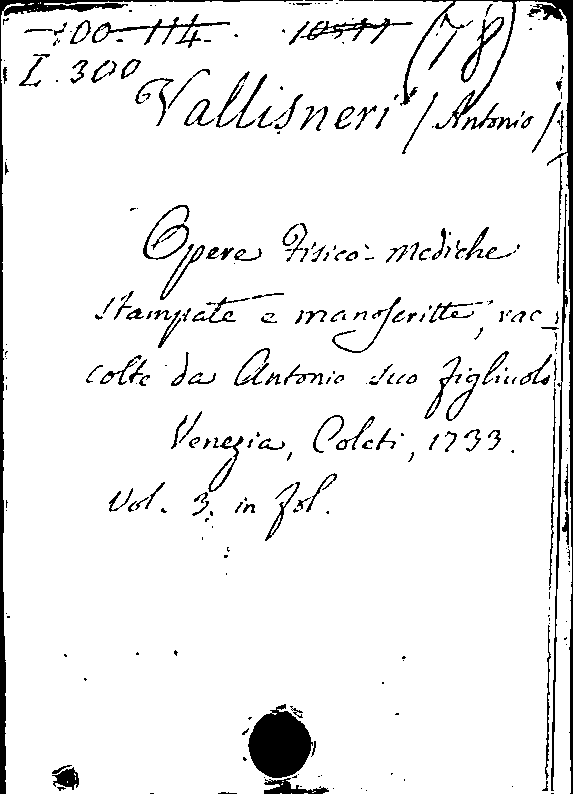 100-114. (78)
I. 300
Vallisneri / Antonio /
Opere Fisico-mediche
stampate e manoscritte, rac-
colte da Antonio suo figliuolo
Venezia, Coleti, 1733.
Vol. 3. in fol.